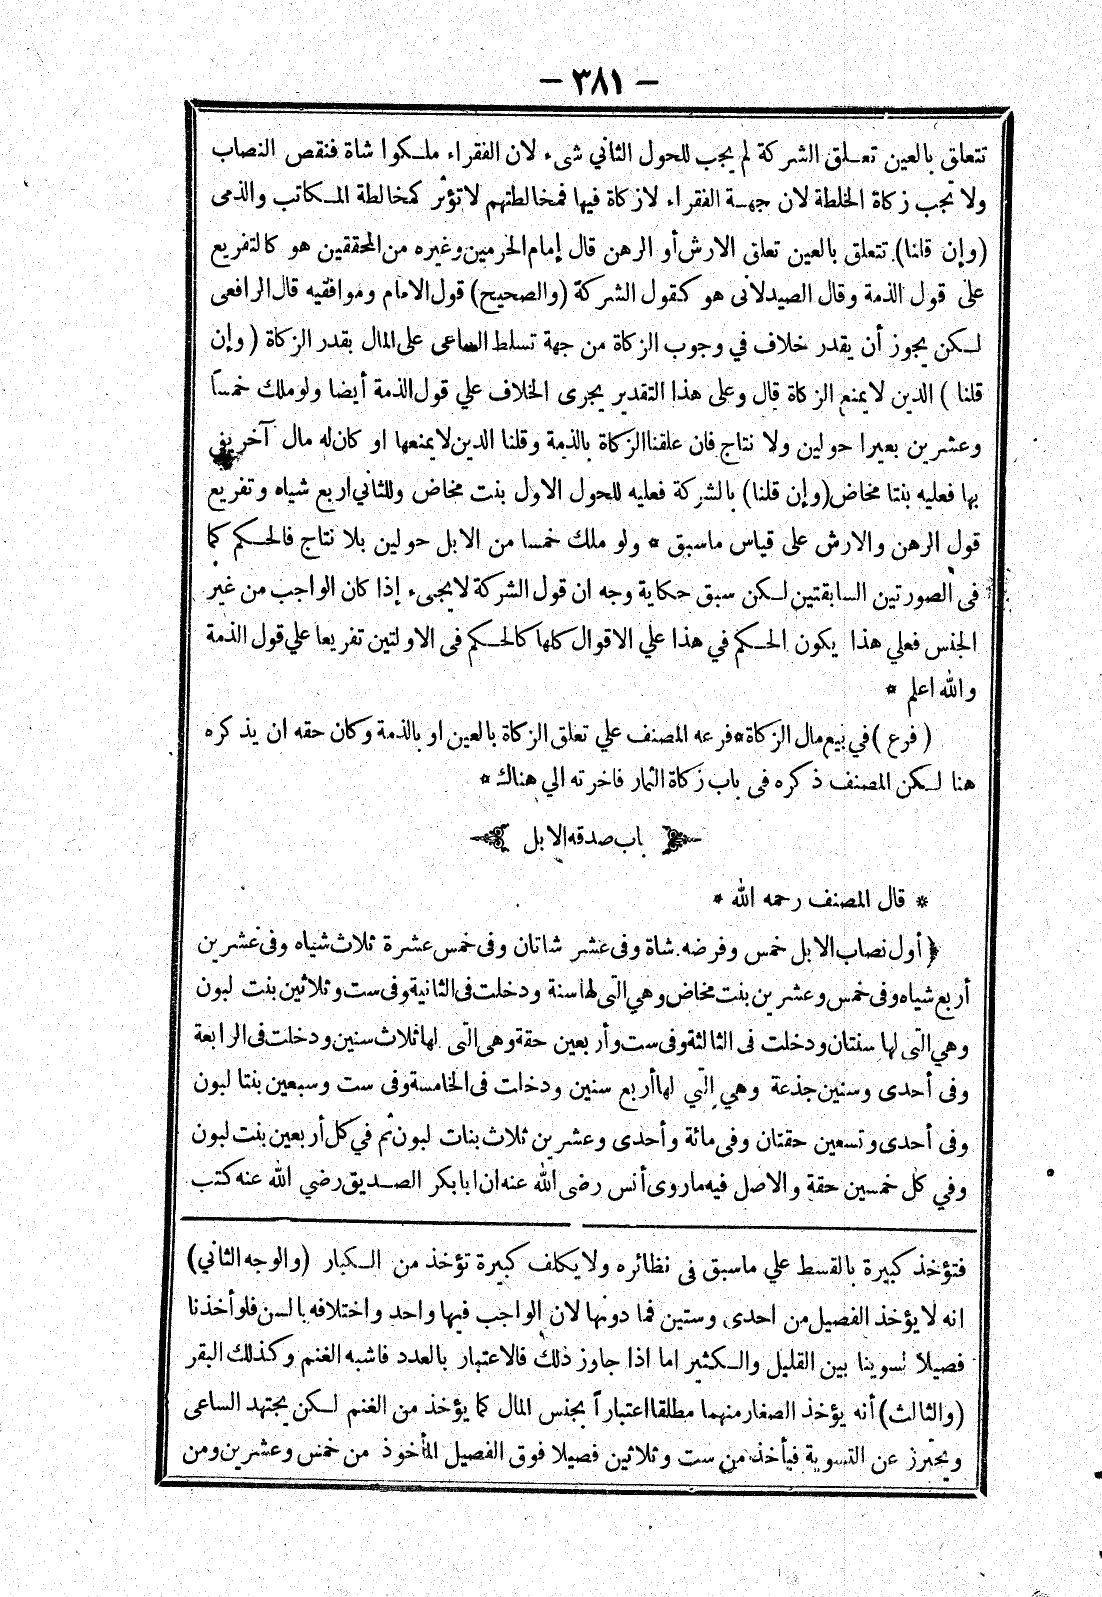 — ٣٨١ —
تتعلق بالعين تعلق الشركة لم يجب للحول الثاني شىء لان الفقراء ملكوا شاة فنقص النصاب
ولا تجب زكاة الخلطة لان جهة الفقراء لازكاة فيها فمخالطتهم لا تؤثر كمخالطة المكاتب والذمى
(وإن قلنا) تتعلق بالعين تعلق الارش أو الرهن قال إمام الحرمين وغيره من المحققين هو كالتفريع
على قول الذمة وقال الصيدلانى هو كقول الشركة (والصحيح) قول الامام وموافقيه قال الرافعى
لكن يجوز أن يقدر خلاف في وجوب الزكاة من جهة تسلط الساعى على المال بقدر الزكاة (وإن
قلنا) الدين لا يمنع الزكاة قال وعلى هذا التقدير يجرى الخلاف علي قول الذمة أيضا ولو ملك خمساً
وعشرين بعيرا حولين ولا نتاج فان علقنا الزكاة بالذمة وقلنا الدين لا يمنعها او كان له مال آخر يفي
بها فعليه بنتا مخاض (وإن قلنا) بالشركة فعليه للحول الاول بنت مخاض وللثاني اربع شياه وتفريع
قول الرهن والارش على قياس ماسبق * ولو ملك خمسا من الابل حولين بلا نتاج فالحكم كما
فى الصورتين السابقتين لكن سبق حكاية وجه ان قول الشركة لا يجىء إذا كان الواجب من غير
الجنس فعلي هذا يكون الحكم في هذا علي الاقوال كلها كالحكم فى الاولتين تفريعا علي قول الذمة
والله اعلم *
(فرع) في بيع مال الزكاة * فرعه المصنف علي تعلق الزكاة بالعين او بالذمة وكان حقه ان يذكره
هنا لكن المصنف ذكره فى باب زكاة الثمار فاخرته الي هناك *
باب صدقه الابل
* قال المصنف رحمه الله *
﴿ أول نصاب الابل خمس وفرضه شاة وفى عشر شاتان وفى خمس عشرة ثلاث شياه وفى عشرين
أربع شياه وفى خمس وعشرين بنت مخاض وهي التى لها سنة ودخلت فى الثانية وفى ست وثلاثين بنت لبون
وهي التى لها سنتان ودخلت فى الثالثة وفى ست وأربعين حقة وهى التى لها ثلاث سنين ودخلت فى الرابعة
وفى أحدى وستين جذعة وهي التي لها أربع سنين ودخلت فى الخامسة وفى ست وسبعين بنتا لبون
وفى أحدى وتسعين حقتان وفى مائة وأحدى وعشرين ثلاث بنات لبون ثم في كل أربعين بنت لبون
وفي كل خمسين حقة والاصل فيه ماروى أنس رضى الله عنه ان ابا بكر الصديق رضي الله عنه كتب
فتؤخذ كبيرة بالقسط علي ماسبق فى نظائره ولا يكلف كبيرة تؤخذ من الكبار (والوجه الثاني)
انه لا يؤخذ الفصيل من احدى وستين فما دونها لان الواجب فيها واحد واختلافه بالسن فلو أخذنا
فصيلا لسوينا بين القليل والكثير اما اذا جاوز ذلك فالاعتبار بالعدد فاشبه الغنم وكذلك البقر
(والثالث) أنه يؤخذ الصغار منهما مطلقا اعتباراً بجنس المال كما يؤخذ من الغنم لكن يجتهد الساعى
ويحترز عن التسوية فيأخذ من ست وثلاثين فصيلا فوق الفصيل المأخوذ من خمس وعشرين ومن